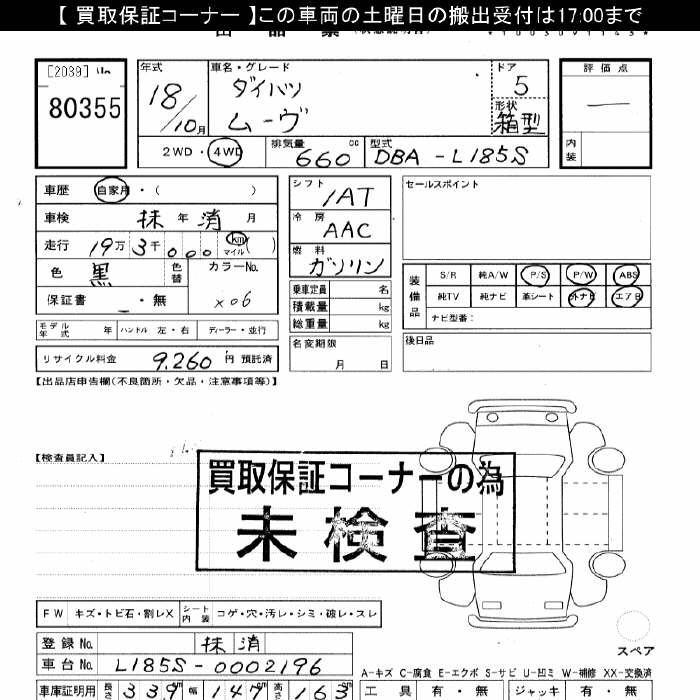 【 買取保証コーナー 】この車両の土曜日の搬出受付は17:00まで
[2039]
80355
年式
18/10月
車名・グレード
ダイハツ
ムーヴ
ドア
5
形状
箱型
評価点
—
内装
2WD・4WD
排気量 660 cc
型式 DBA-L185S
車歴 自家用・( )
車検 抹 年 消 月
走行 19万 3千 000 km マイル( )
色 黒 色替
カラーNo.
X06
保証書 ・無
シフト
IAT
冷房
AAC
燃料
ガソリン
乗車定員 名
積載量 kg
総重量 kg
名変期限
月 日
セールスポイント
装備品
S/R 純A/W P/S P/W ABS
純TV 純ナビ 革シート 外ナビ エアB
ナビ型番:
後日品
モデル年式 年 ハンドル 左・右 ディーラー・並行
リサイクル料金 9,260 円 預託済
【出品店申告欄(不良箇所・欠品・注意事項等)】
【検査員記入】
買取保証コーナーの為
未検査
FW キズ・トビ石・割レX シート内装 コゲ・穴・汚レ・シミ・破レ・スレ
スペア
登録No. 抹消
車台No. L185S-0002196
A-キズ C-腐食 E-エクボ S-サビ U-凹ミ W-補修 XX-交換済
車庫証明用 長さ 339 幅 147 高さ 163
工具 有・無 ジャッキ 有・無